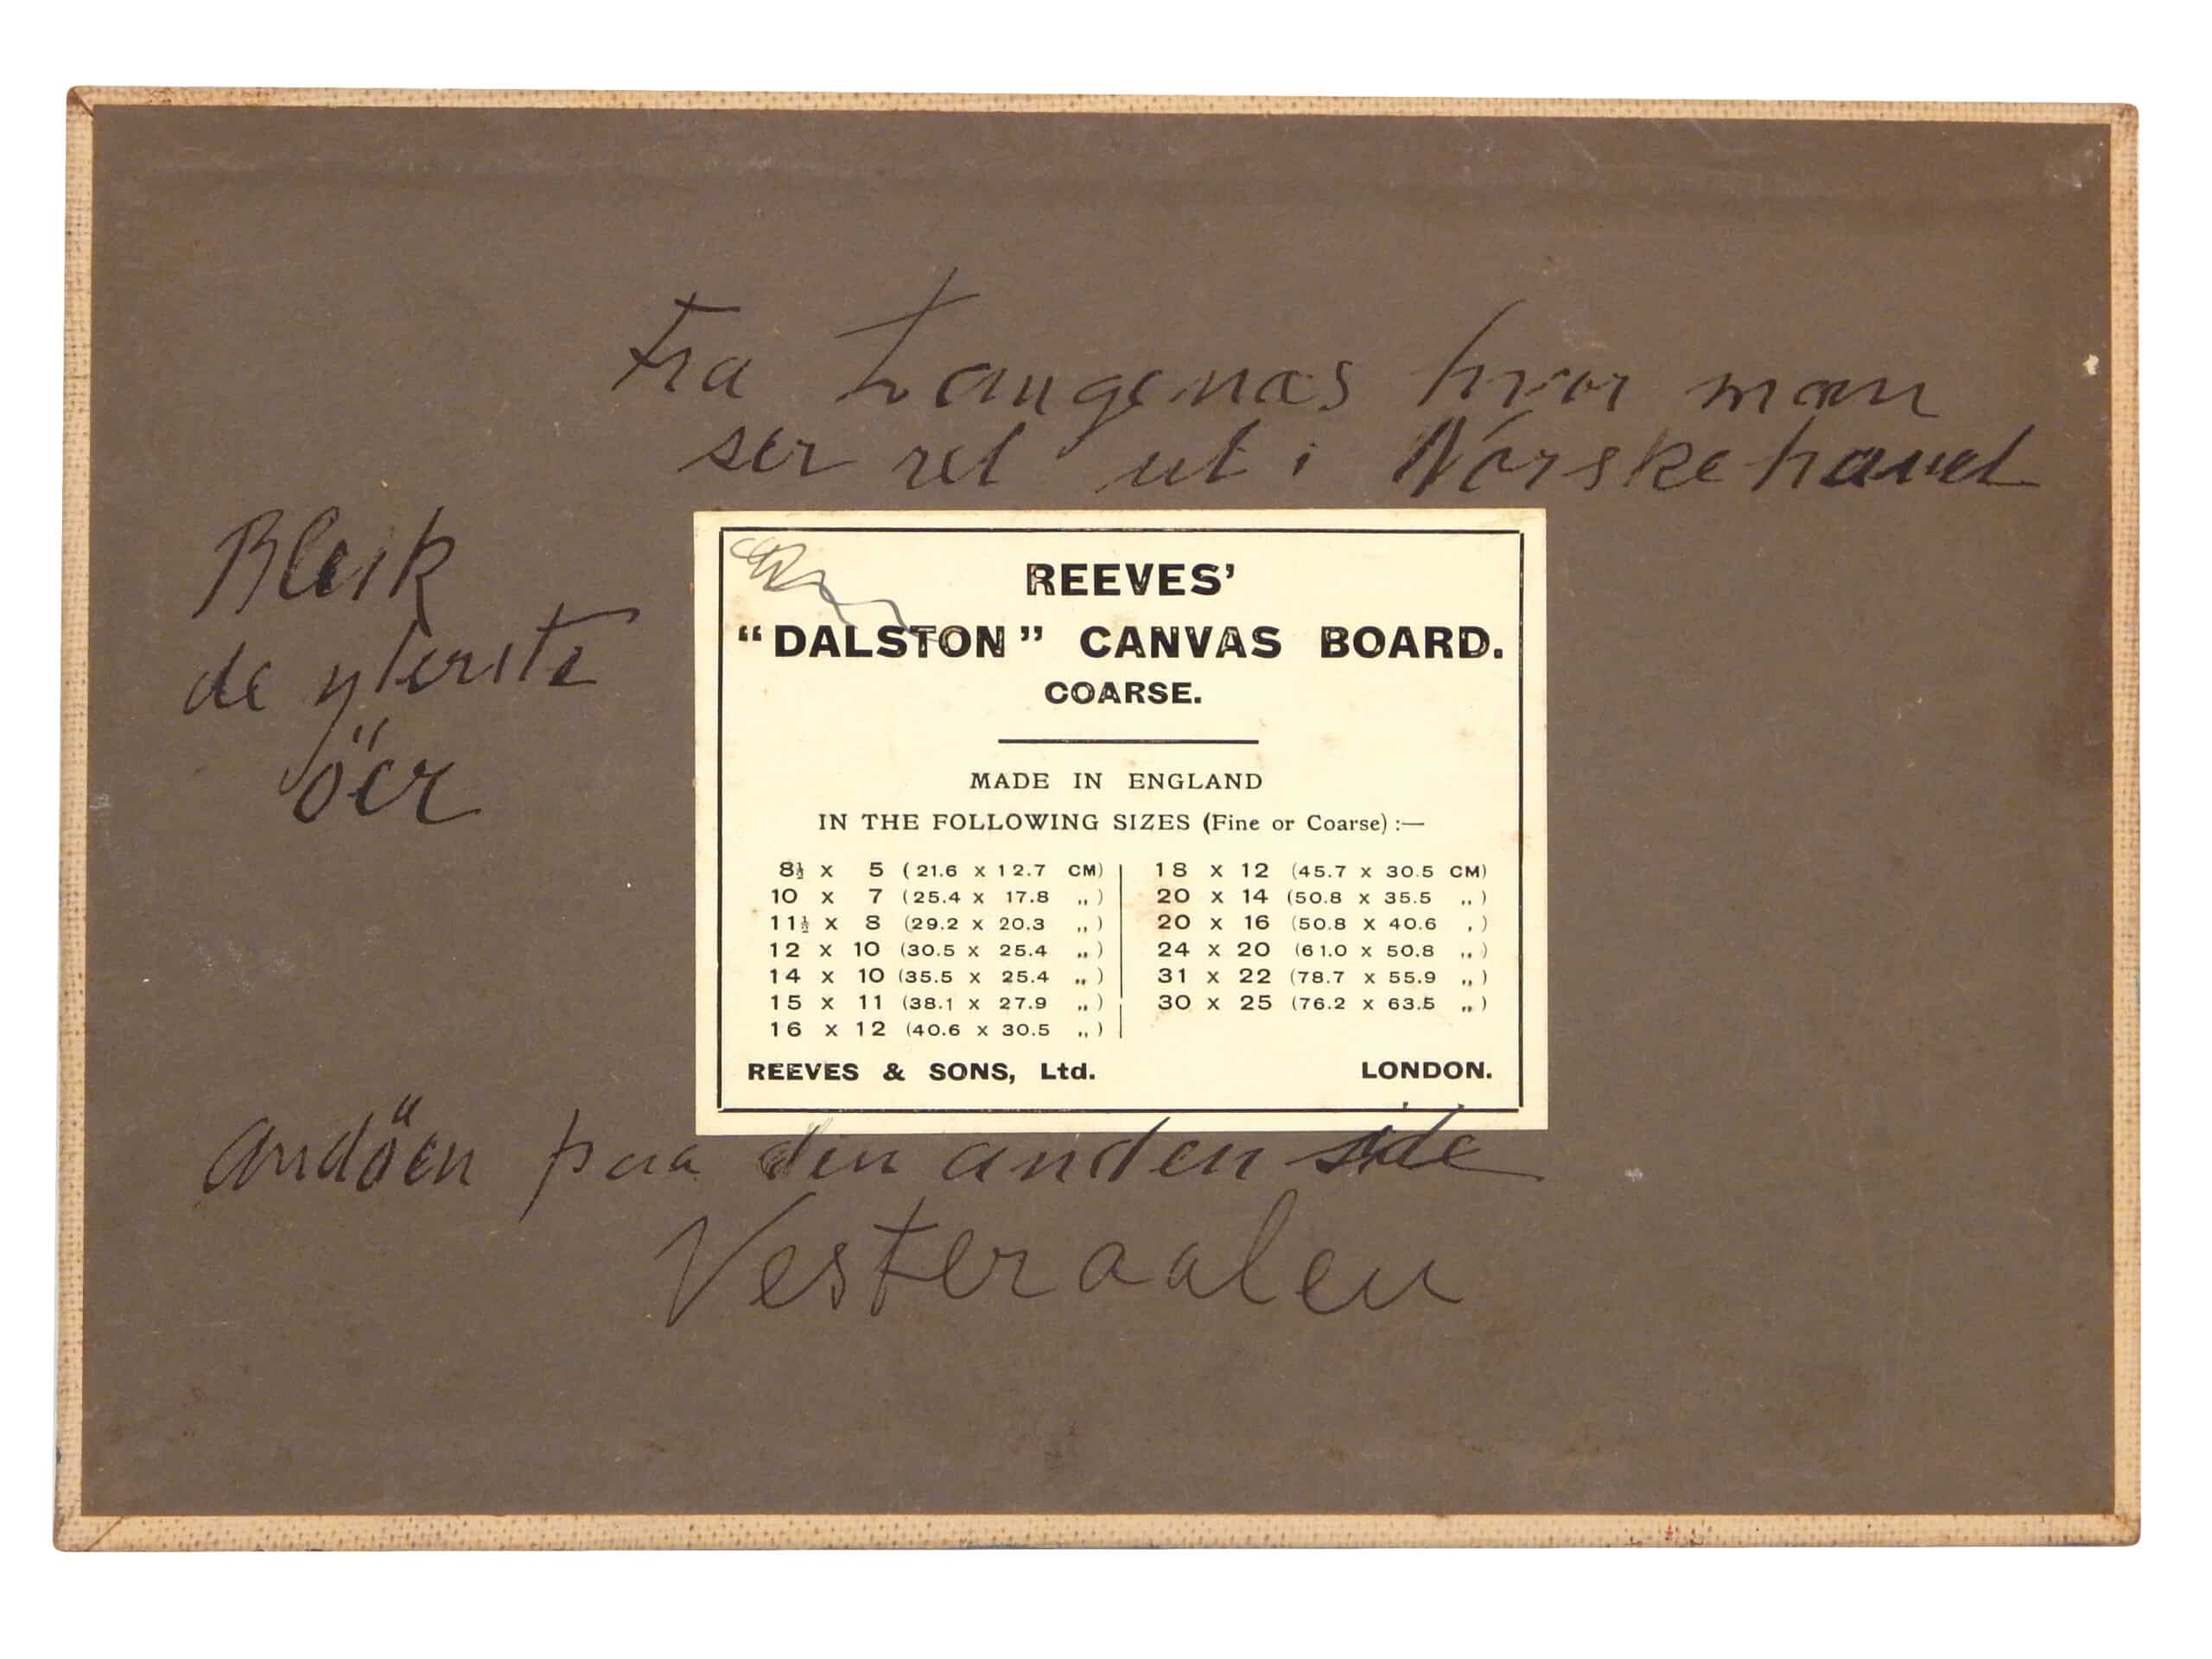 Fra Langenæs hvor man
ser ret ut i Norskehavet
Bleik
de yterste
öer
REEVES’
“DALSTON” CANVAS BOARD.
COARSE.
MADE IN ENGLAND
IN THE FOLLOWING SIZES (Fine or Coarse) :—
8½ x 5 (21.6 x 12.7 CM) 18 x 12 (45.7 x 30.5 CM)
10 x 7 (25.4 x 17.8 „) 20 x 14 (50.8 x 35.5 „)
11½ x 8 (29.2 x 20.3 „) 20 x 16 (50.8 x 40.6 „)
12 x 10 (30.5 x 25.4 „) 24 x 20 (61.0 x 50.8 „)
14 x 10 (35.5 x 25.4 „) 31 x 22 (78.7 x 55.9 „)
15 x 11 (38.1 x 27.9 „) 30 x 25 (76.2 x 63.5 „)
16 x 12 (40.6 x 30.5 „)
REEVES & SONS, Ltd. LONDON.
Andöen paa den anden side
Vesteraalen